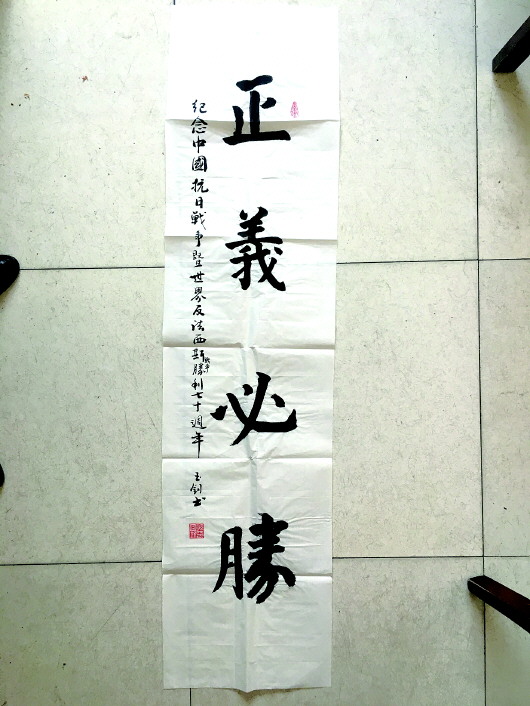 正義必勝
紀念中國抗日戰爭暨世界反法西斯戰爭勝利七十週年
玉剑书